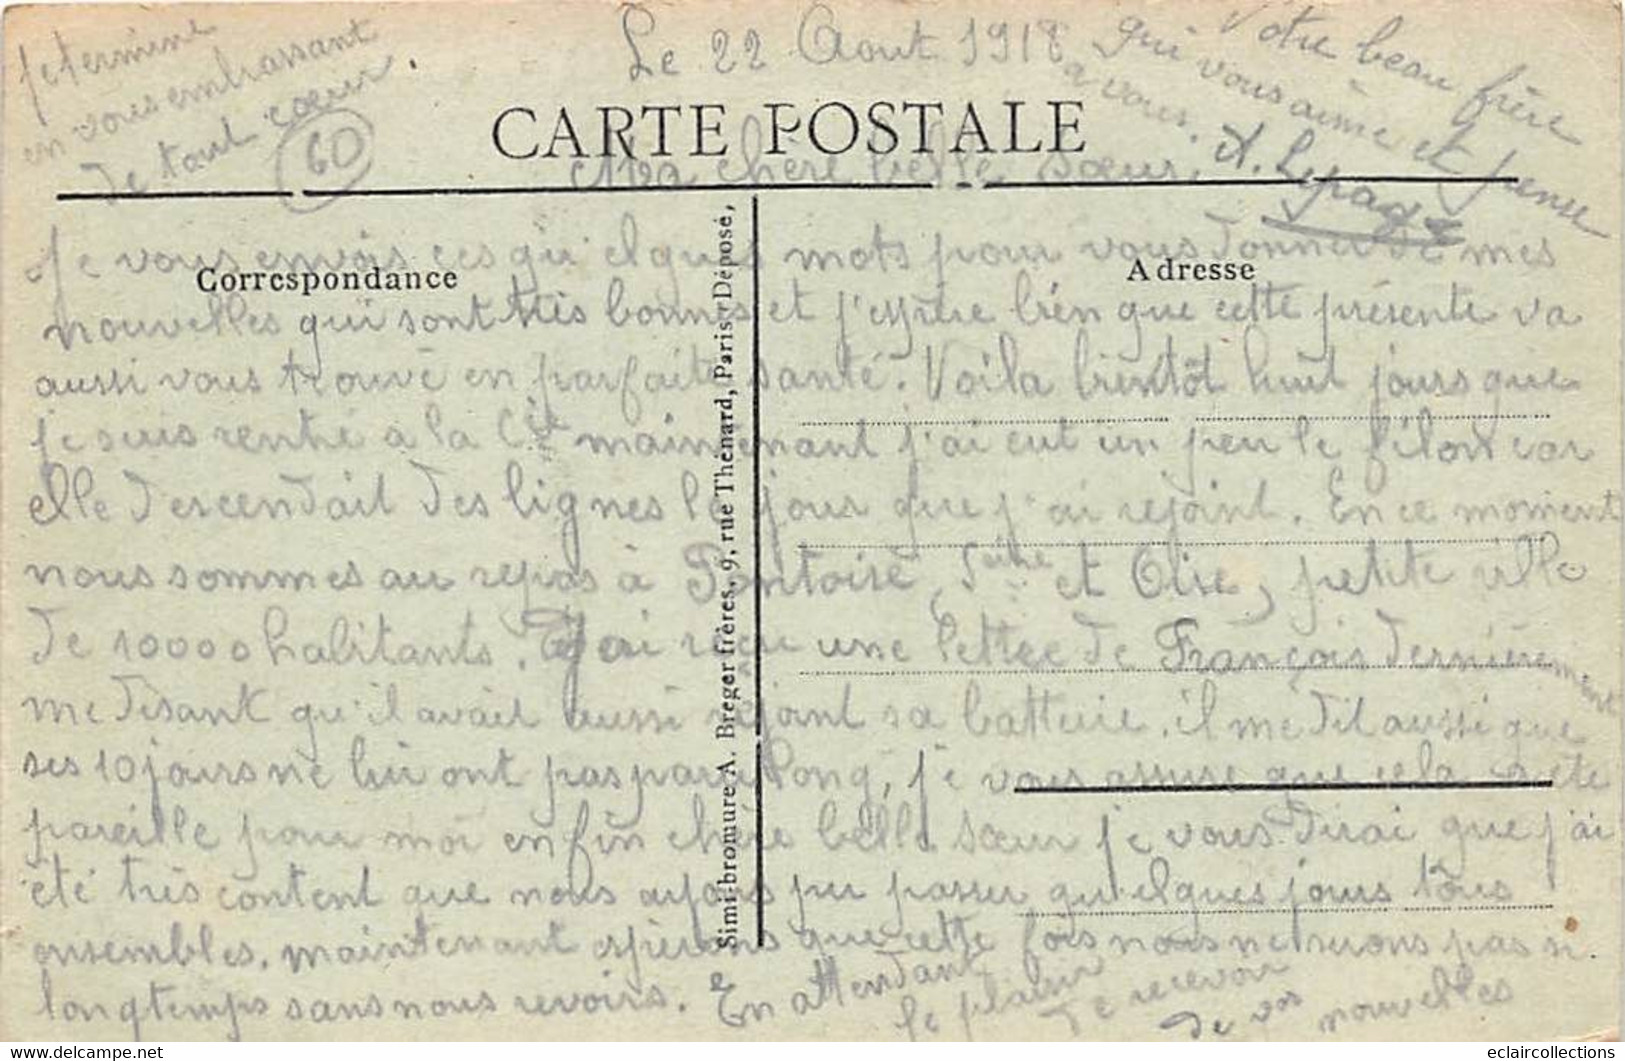 Le 22 Aout 1918
CARTE POSTALE
60
Ma chère belle sœur,
Correspondance
Adresse
Je vous envois ces qu'elques mots pour vous donner de mes
nouvelles qui sont très bonnes et j'espère bien que cette présente va
aussi vous trouvé en parfaite santé. Voila bientôt huit jours que
je suis rentré à la Cie maintenant j'ai eut un peu le filon car
elle descendait des lignes le jour que j'ai rejoint. En ce moment
nous sommes au repos à Pontoise, Seine et Oise, petite ville
de 10000 habitants. J'ai reçu une lettre de François dernièrement
me disant qu'il avait aussi rejoint sa batterie. il me dit aussi que
ses 10 jours ne lui ont pas paru long, je vous assure que cela a été
pareille pour moi enfin chère belle sœur je vous dirai que j'ai
été très content que nous ayons pu passer qu'elques jours tous
ensembles. maintenant espérons que cette fois nous ne serons pas si
longtemps sans nous revoirs. En attendant
le plaisir
de recevoir
de vos
nouvelles
je termine
en vous embrassant
de tout cœur.
Votre beau frère
qui vous aime et pense
a vous.
A. Lepage
Simil-bromure A. Breger frères, 9, rue Thénard, Paris. Déposé,
eclaircollections